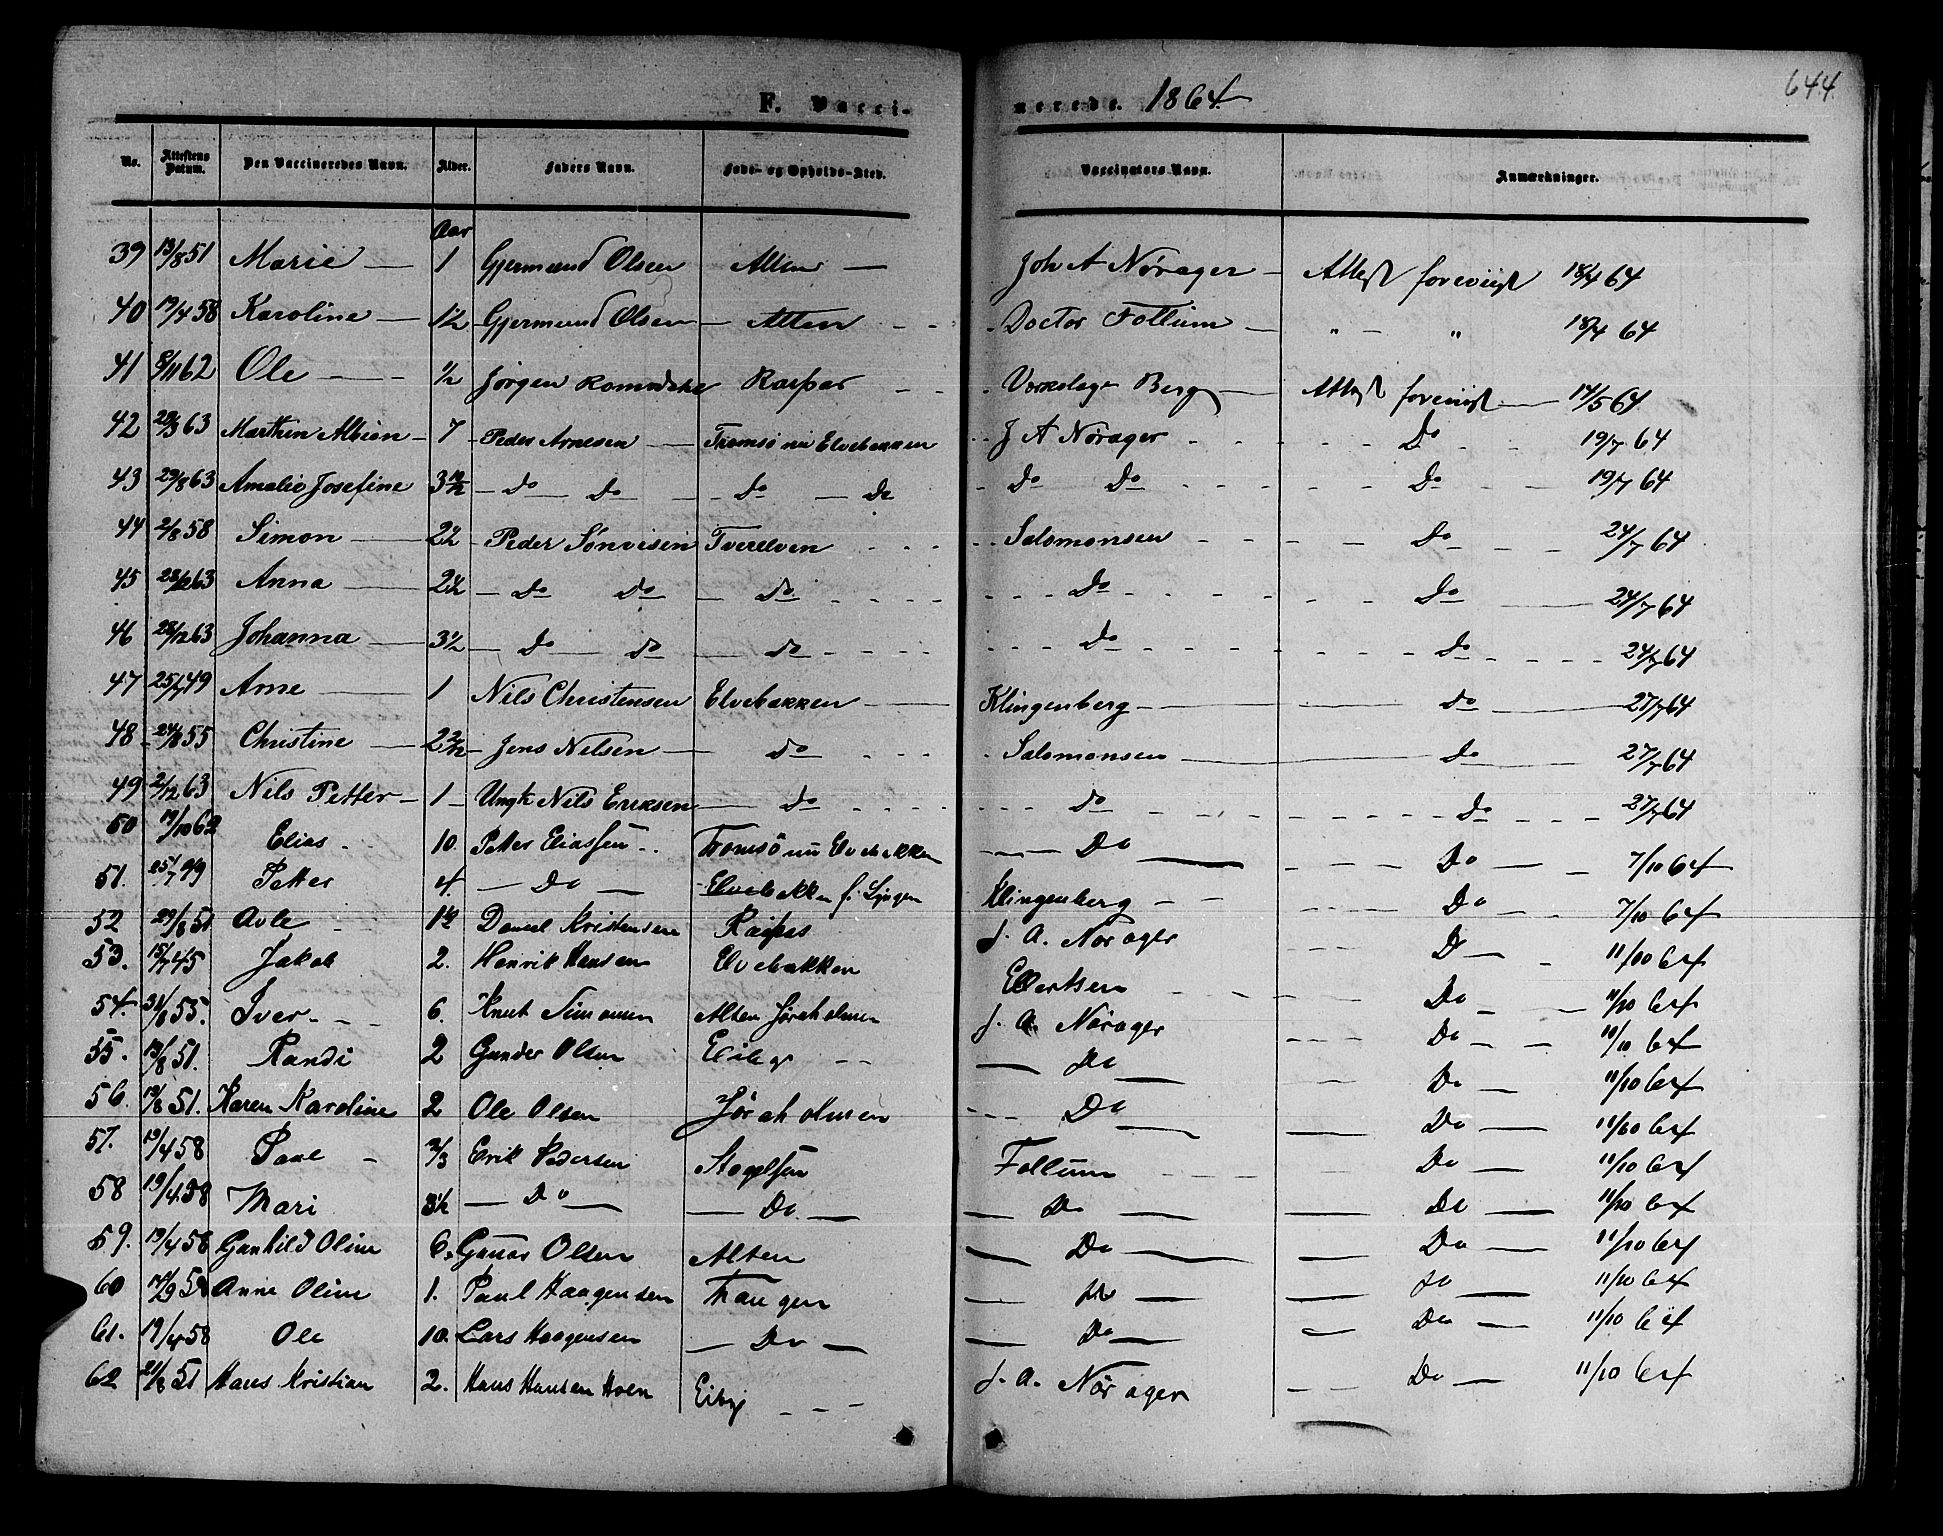 644
F. Vacci- nerede. 1864
No. Attestens Datum. Den Vaccineredes Navn. Alder. Faders Navn. Føde- og Opholds-Sted. Vaccinators Navn. Anmærkninger.
Aar
39 13/8 51 Marie — 1 Gjermund Olsen Alten — Joh A Nørager — Attest foreviist 18/4 64
40 19/4 58 Karoline — 1 1/2 Gjermund Olsen — Alten - - Doctor Follum — " — " 18/4 64
41 8/11 62 Ole — 1/2 Jørgen Raipas - - Berg — Attest foreviist — 17/5 64
42 29/3 63 7 Peder Arnesen — Tromsø nu Elvebakken J A Nørager - - - Do - - 19/7 64
43 29/8 63 Amalie Josefine 3 10/12 — do — do — do — do Do Do - - Do - - 19/7 64
44 2/8 58 Simon — Peder Tverelven - - - Salomonsen - - Do - - 24/7 64
45 63 Anna — — Do Do — do - - - Do - - Do — 24/7 64
46 28/12 63 Johanna — 3 1/2 — Do do — do - - - Do - - Do - - 24/7 64
47 25/7 49 Arne — 1 Nils Christensen Elvebakken — Klingenberg — do — 27/7 64
48 24/8 55 Christine — Jens Nilsen — do - - Salomonsen — do — 27/7 64
49 2/12 63 Nils Petter — 1 — Ungk Nils Eriksen — do - - - do - - do - - 27/7 64
50 19/10 62 Elias - - 10 Petter Eliassen - - Tromsø nu Elvebakken — Do — Do — 7/10 64
51. 25/7 49 Petter 4 — Do — Elvebakken f. Lyngen Klingenberg — Do - - 7/10 64
52 29/8 51 - Daniel Kristensen Raipas J. A. Nørager - - D — - 11/10 64
53. 15/7 45 Jakob 2. Henrik Hansen Elvebakken - - Do — - 11/10 64
54. 31/8 55. Iver - - 6. Knut Simonsen Alten Jøraholmen J. A. Nørager - - Do — - 11/10 64
55. 13/8 51. Randi 2 Gunder Olsen Eiby - - — Do — - - Do — 11/10 64
56. 19/8 51. Karen Karoline 2 Ole Olsen Jøraholmen - - Do — — Do — 11/10 64
57. 19/4 58 Paul - 2/3 Erik Pedersen Follum - - Do — 11/10 64
58 19/4 58 Mari 3 1/2 — Do — — Do. — — Do — — Do — 11/10 64
59. 19/4 58 Gunhild Oline 6. Gunar Olsen Alten — Do — — Do — 11/10 64
60 Anne Oline 1. Paul Haagensen — Do — — Do — 11/10 64
61. 19/4 58 Ole 10. Lars Haagensen — Do — — Do — — Do — 11/10 64
62 21/8 51 Hans Kristian 2. Hans Hansen Hoen Eiby - - - J. A. Nørager - - Do — 11/10 64